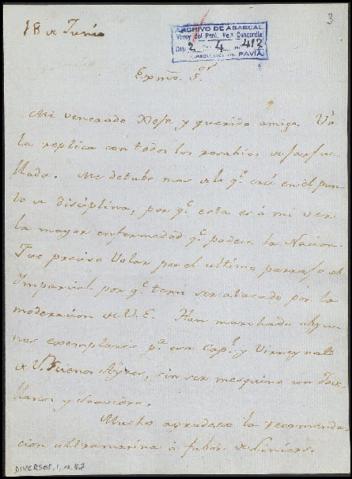 18 de Junio
3
ARCHIVO DE ABASCAL
Virrey del Perú, Mqs Concordia
2 4 412
PAVIA
Expmo. Sor
Mi venerado Xefe y querido amigo. Va
la replica con todos los
Me detube mas de lo qe crei en el pun
to de disciplina, por qe esta es á mi ver
la mayor enfermedad qe padece la Nacion.
Fue preciso volar por el ultimo parrafo el
Imparcial por qe temi ser atacado por la
moderacion de V.E. Han marchado algu-
nos exemplares pa esa Capl y Virreynato
de Buenos Ayres, sin ser mezquino con
y
Mucho agradezco la recomenda-
cion ultramarina á fabor de Liniers.
DIVERSOS, 1, n. 82